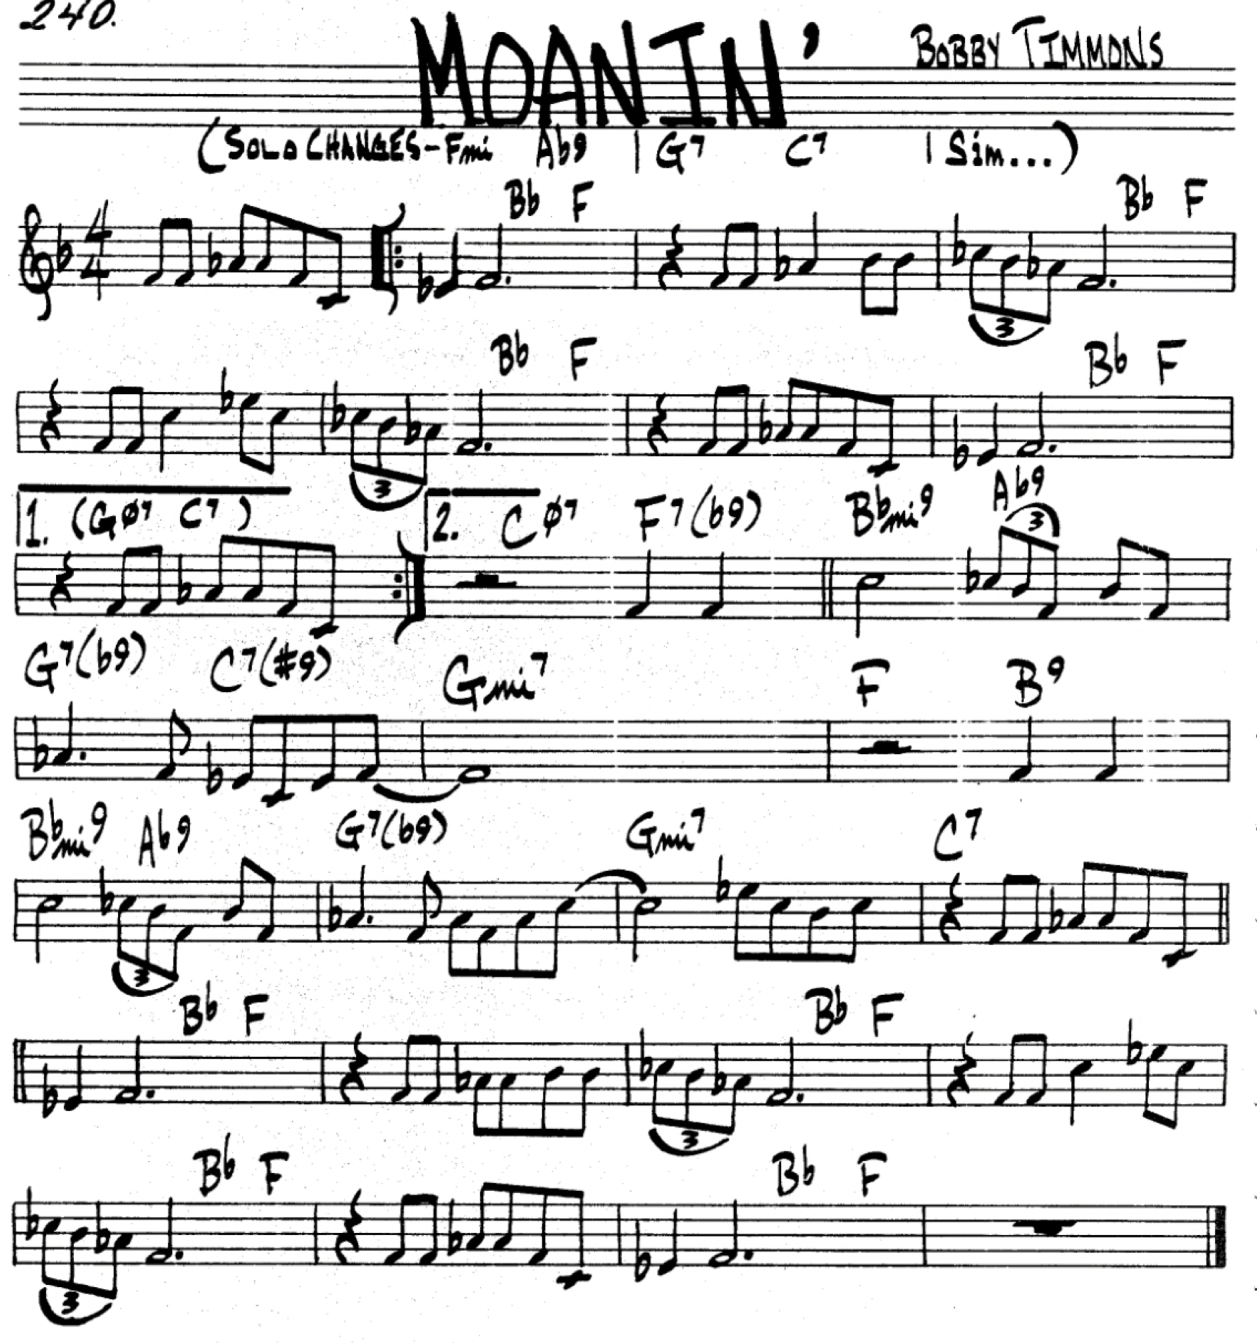 240.
MOANIN' BOBBY TIMMONS
(SOLO CHANGES-Fmi Ab9 | G7 C7 | Sim...)
Bb F Bb F
4/4
3
Bb F Bb F
3
1. (Gø7 C7) 2. Cø7 F7(b9) Bbmi9 Ab9
3
G7(b9) C7(#9) Gmi7 F B9
Bbmi9 Ab9 G7(b9) Gmi7 C7
3
Bb F Bb F
3
Bb F Bb F
3